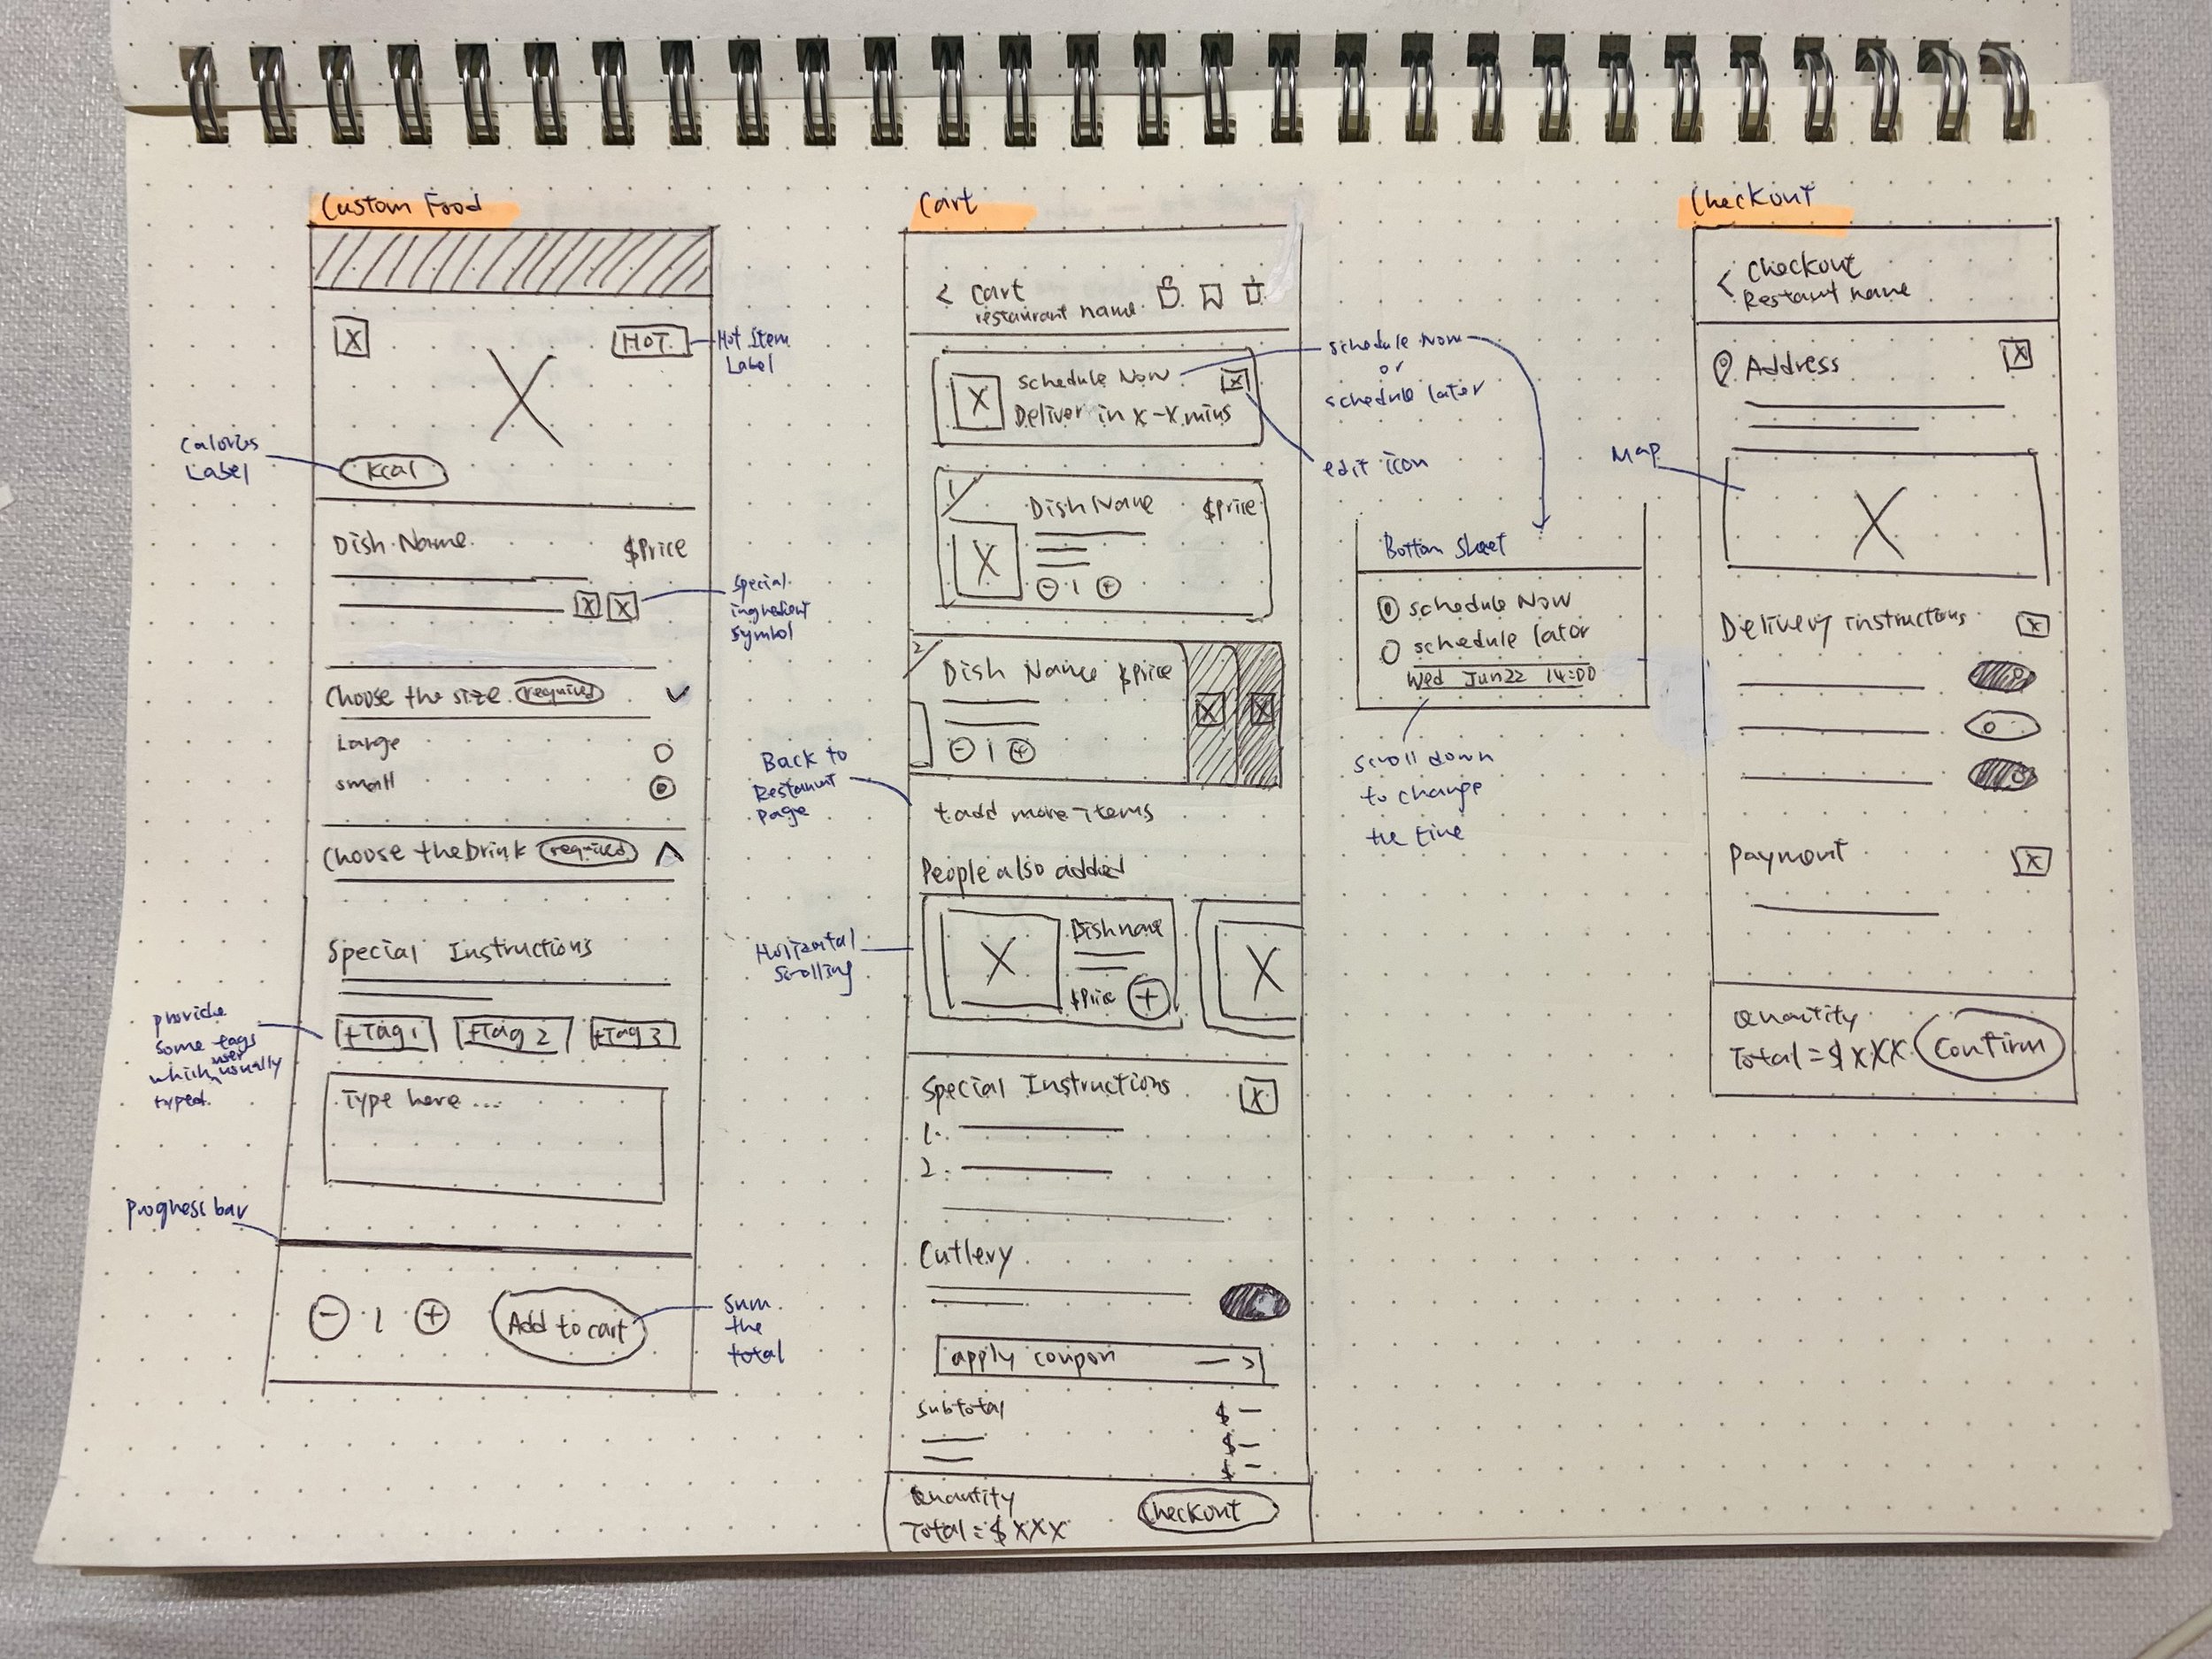 Custom Food
HOT
Hot Item
Label
Calories
Label
Kcal
Dish Name
$Price
Special
ingredient
symbol
Choose the size required
Large
small
Choose the Drink required
Special Instructions
provide
some tags
which user usually
typed.
+Tag 1
+Tag 2
+Tag 3
Type here ...
Progress bar
- 1 +
Add to cart
Sum
the
total
Cart
< Cart
restaurant name
Schedule Now
Deliver in X-X mins
schedule Now
or
schedule later
edit icon
1
Dish Name
$Price
- 1 +
2
Dish Name $Price
- 1 +
Back to
Restaurant
page
+ add more items
People also added
Horizontal
scrolling
Dish name
$Price +
Special Instructions
1.
2.
Cutlery
apply coupon
>
Subtotal
$ -
$ -
$ -
Quantity
Total = $ XXX
Checkout
Bottom Sheet
schedule Now
schedule later
Wed Jun 22 14:00
scroll down
to change
the time
Checkout
< Checkout
Restaurant name
Address
Map
Delivery instructions
Payment
Quantity
Total = $ XXX
Confirm